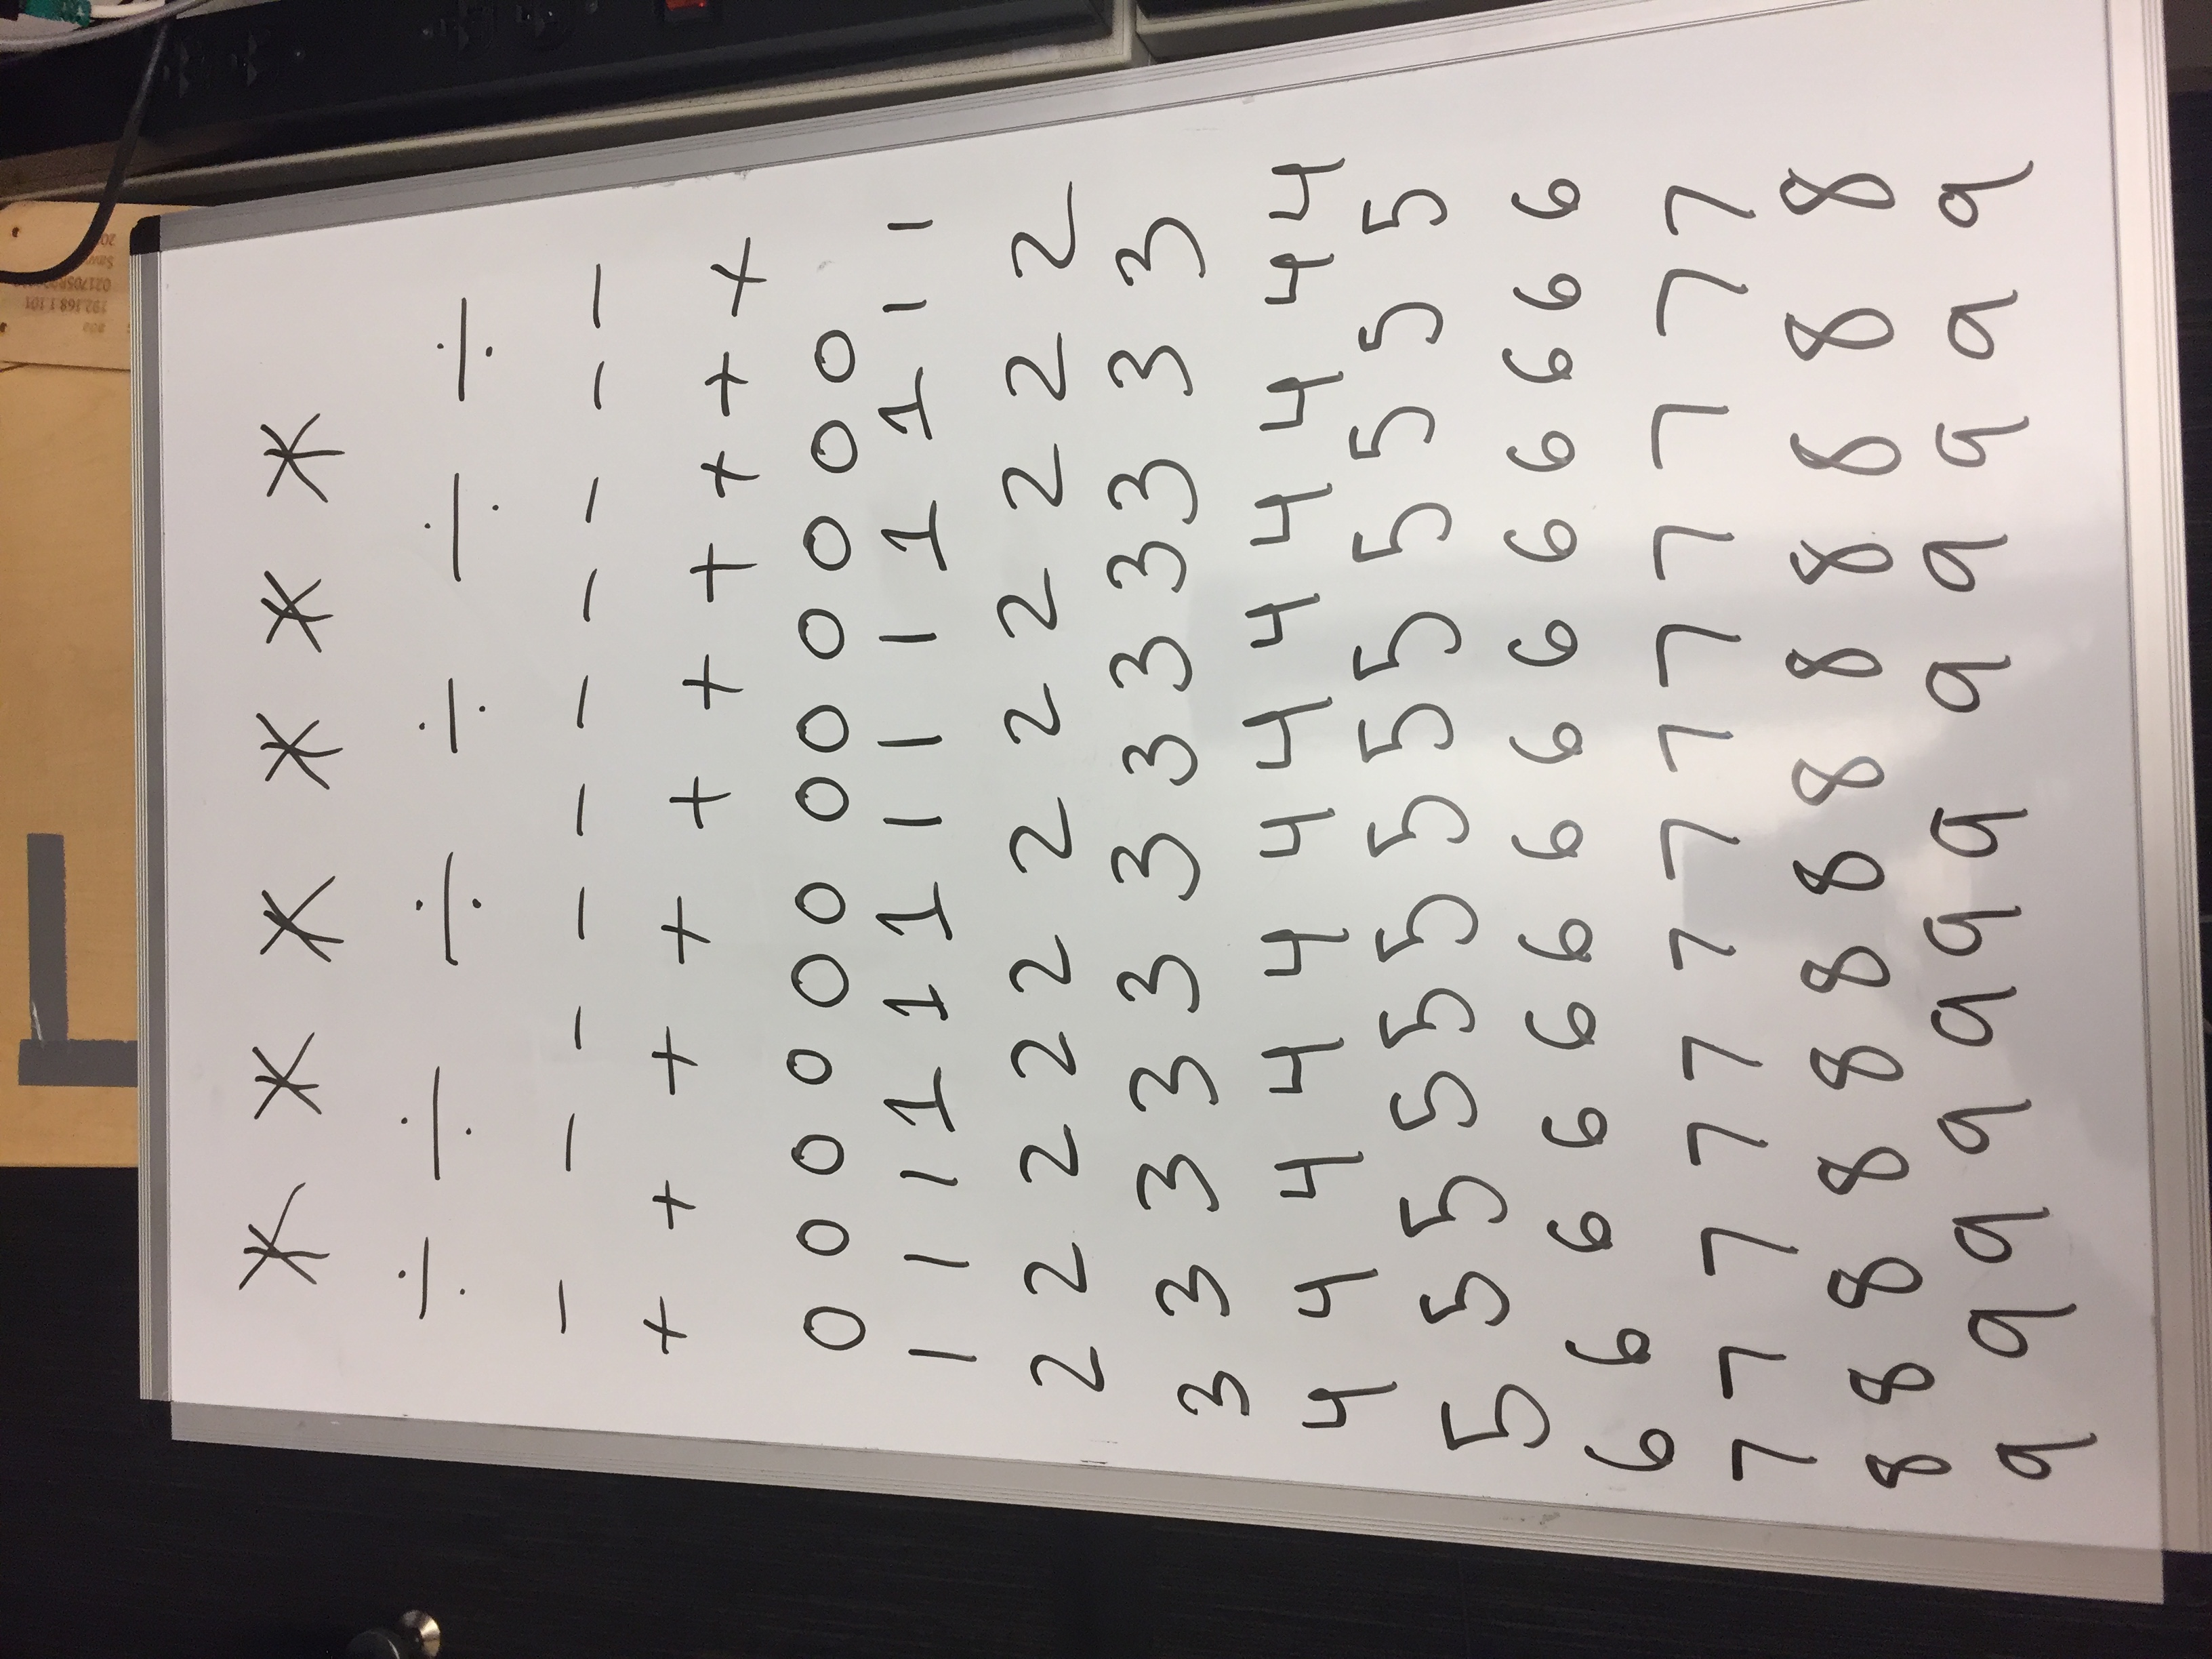 192.168.1.101
* * * * * *
÷ ÷ ÷ ÷ ÷ ÷
- - - - - - - - - -
+ + + + + + + + + +
0 0 0 0 0 0 0 0 0 0 0 0
1 1 1 1 1 1 1 1 1 1 1 1 1
2 2 2 2 2 2 2 2 2 2 2
3 3 3 3 3 3 3 3 3 3 3 3
4 4 4 4 4 4 4 4 4 4 4 4
5 5 5 5 5 5 5 5 5 5 5 5 5
6 6 6 6 6 6 6 6 6 6 6 6 6 6
7 7 7 7 7 7 7 7 7 7 7 7 7
8 8 8 8 8 8 8 8 8 8 8 8 8
9 9 9 9 9 9 9 9 9 9 9 9